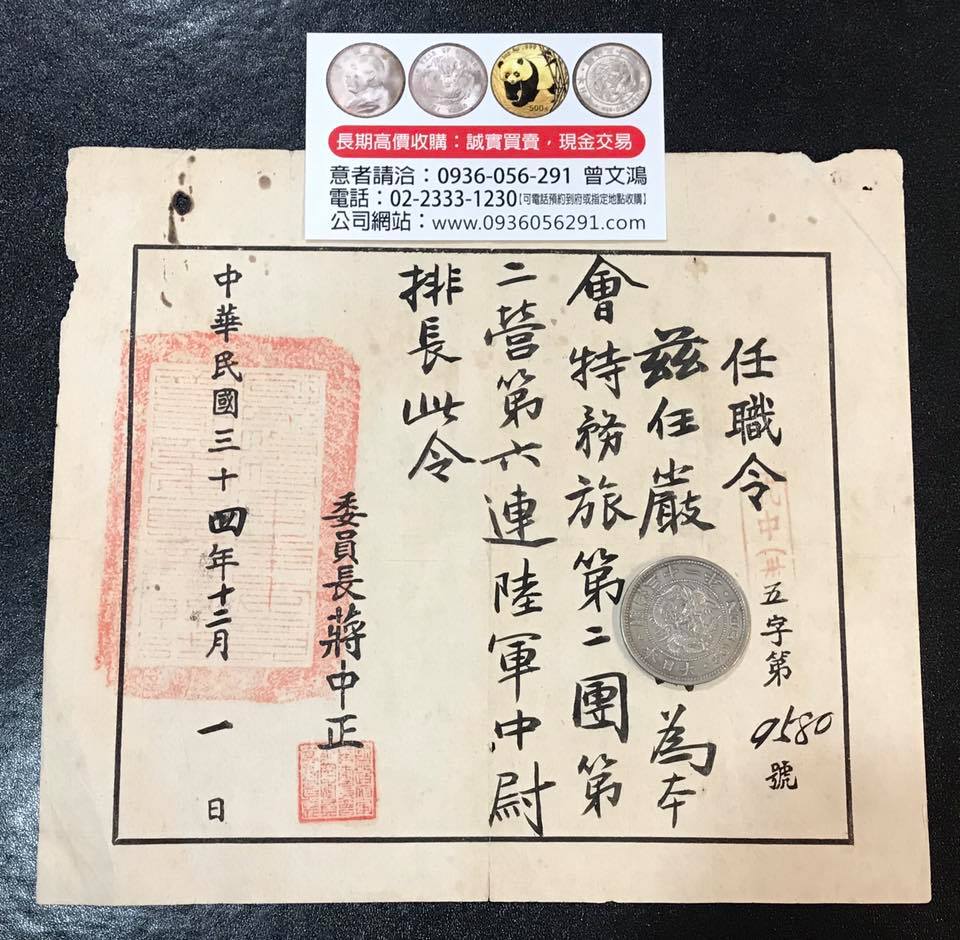 長期高價收購：誠實買賣，現金交易
意者請洽：0936-056-291 曾文鴻
電話：02-2333-1230【可電話預約到府或指定地點收購】
公司網站：www.0936056291.com
任職令
五字第9580號
茲任嚴為本
會特務旅第二團第
二營第六連陸軍中尉
排長此令
委員長蔣中正
中華民國三十四年十二月一日